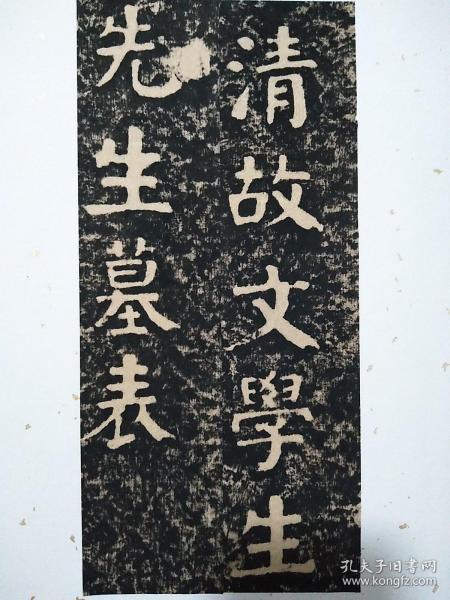 清故文學生
先生墓表
孔夫子旧书网
www.kongfz.com